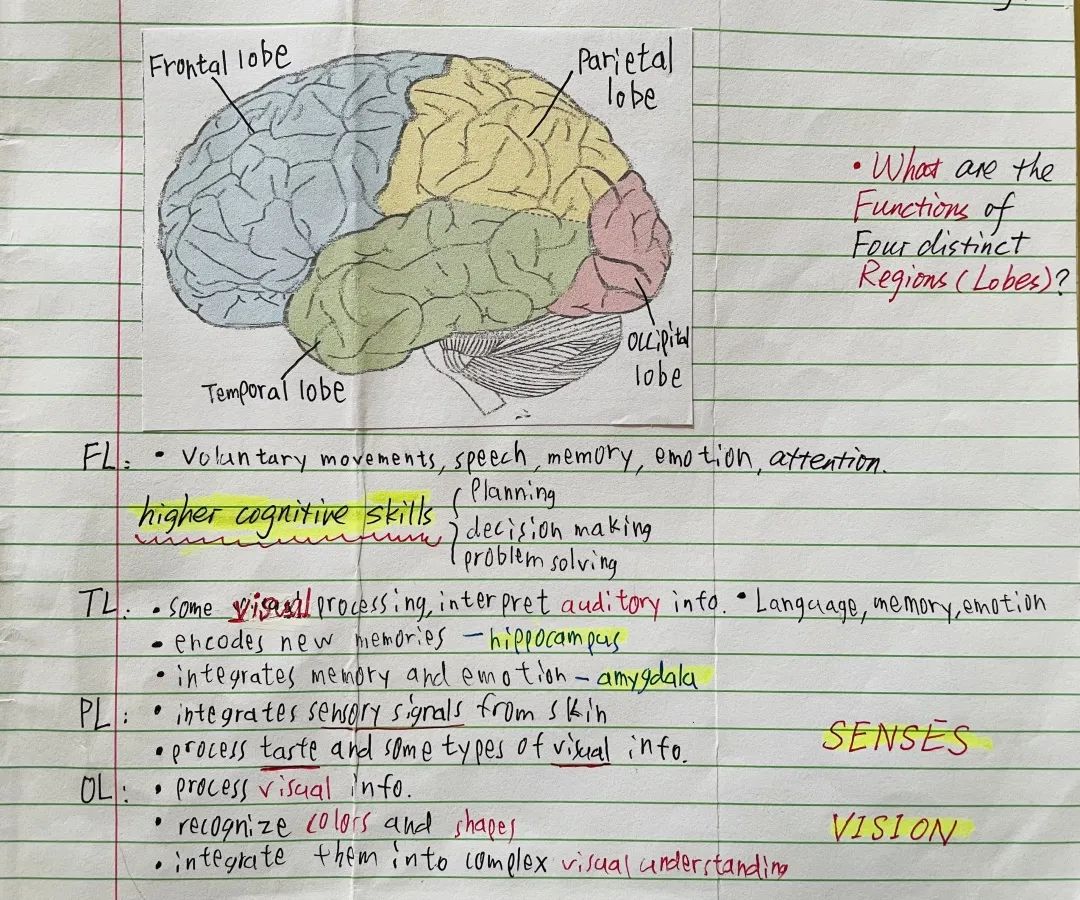 Frontal lobe
Parietal
lobe
• What are the
Functions of
Four distinct
Regions (Lobes)?
Occipital
lobe
Temporal lobe
FL: • Voluntary movements, speech, memory, emotion, attention.
higher cognitive skills { Planning
decision making
problem solving
TL: • some visual processing, interpret auditory info. • Language, memory, emotion
• encodes new memories – hippocampus
• integrates memory and emotion – amygdala
PL: • integrates sensory signals from skin
• process taste and some types of visual info.
SENSES
OL: • process visual info.
• recognize colors and shapes
VISION
• integrate them into complex visual understanding